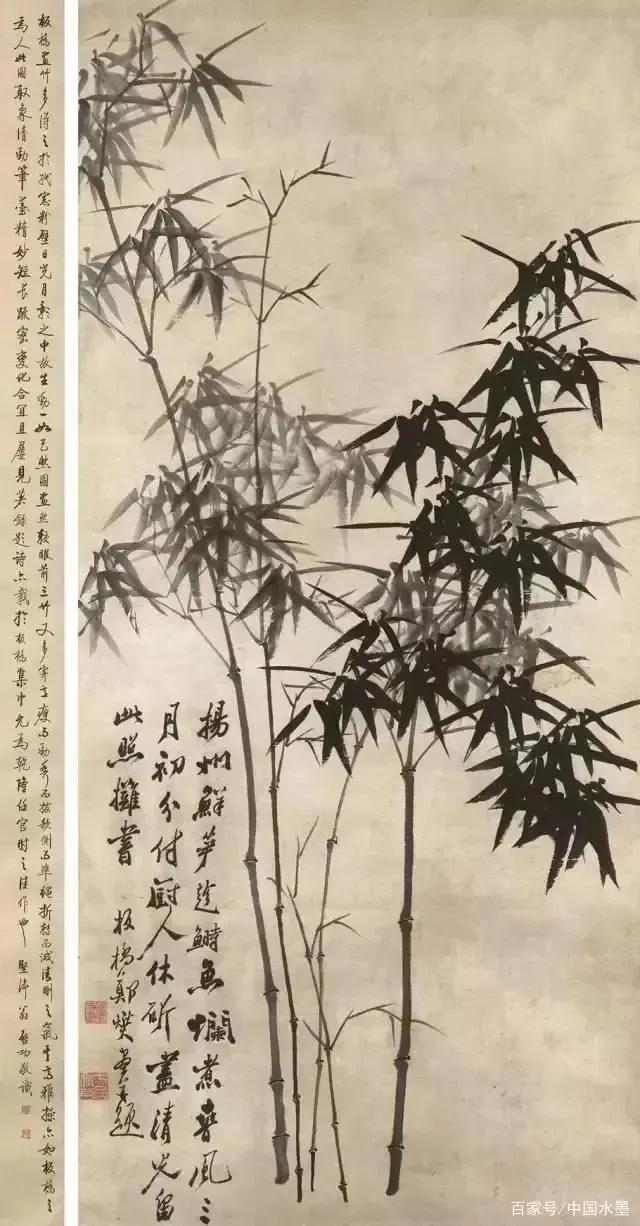 揚州鮮笋趁鰣魚爛煮春風三
月初分付厨人休斫盡清光留
此照攤書 板橋鄭燮畫并題
板橋畫竹多得之於紙窓粉壁日光月影之中故生動一如眼前之竹又多瘦而勁秀而拔欹側而準繩折轉而清剛之氣高雅操亦如板橋之
為人此圖取象清勁筆墨精妙短長疏密變化合宜且屢見著錄題詩亦載於板橋集中尤為乾隆任官時之佳作也 堅淨翁啟功敬識
百家号/中国水墨